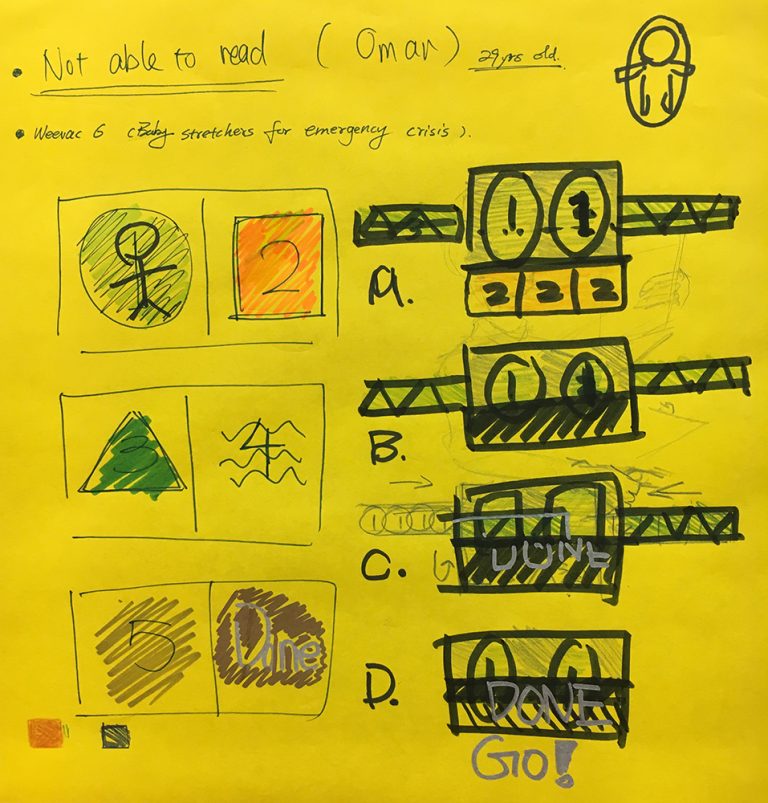 Not able to read (Omar) 29 yrs old.
Weevac 6 (Baby stretchers for emergency crisis).
2
1 1
A.
2 2 2
1 1
3 4
B.
1 1 1
DONE
C.
5 Done
1 1
D.
DONE
GO!